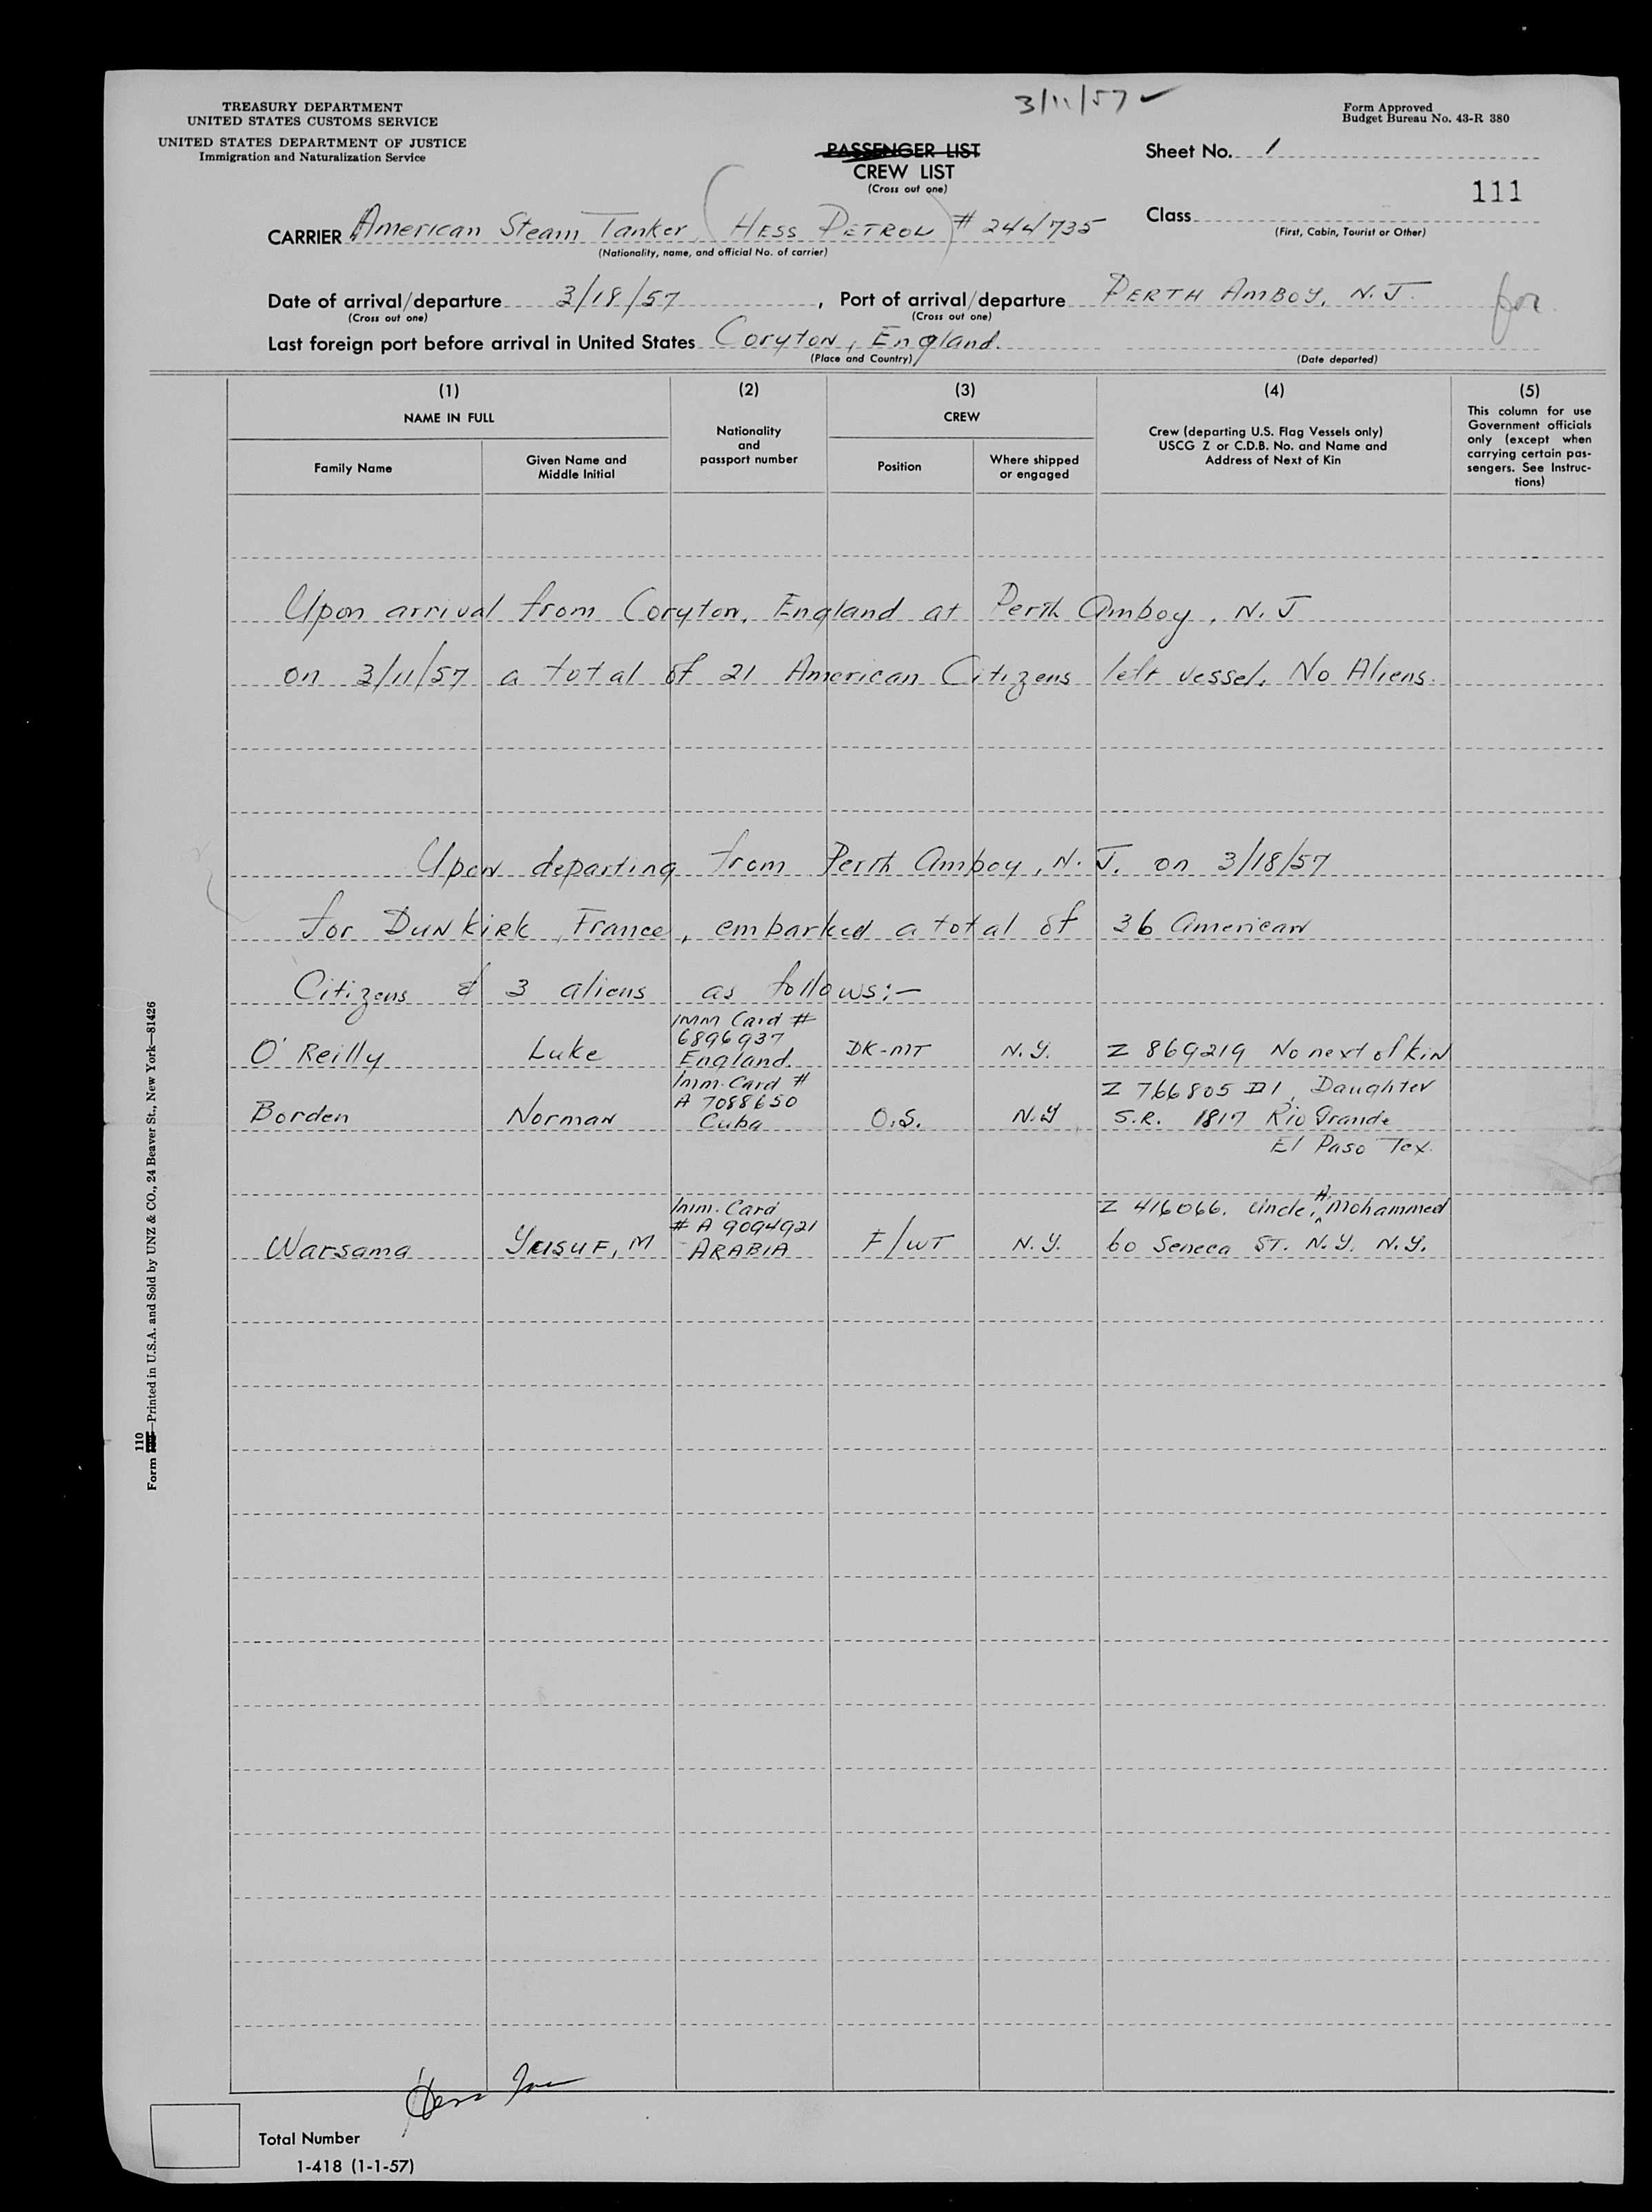 3/11/57 ✓
TREASURY DEPARTMENT
UNITED STATES CUSTOMS SERVICE
UNITED STATES DEPARTMENT OF JUSTICE
Immigration and Naturalization Service
Form Approved
Budget Bureau No. 43-R 380
PASSENGER LIST
CREW LIST
(Cross out one)
Sheet No. 1
111
CARRIER American Steam Tanker (HESS PETROL) # 244735
(Nationality, name, and official No. of carrier)
Class
(First, Cabin, Tourist or Other)
Date of arrival/departure 3/18/57, Port of arrival/departure PERTH AMBOY, N.J.
(Cross out one) (Cross out one)
Last foreign port before arrival in United States Coryton, England.
(Place and Country) (Date departed)
(1) (2) (3) (4) (5)
NAME IN FULL
Family Name
Given Name and
Middle Initial
Nationality
and
passport number
CREW
Position
Where shipped
or engaged
Crew (departing U.S. Flag Vessels only)
USCG Z or C.D.B. No. and Name and
Address of Next of Kin
This column for use
Government officials
only (except when
carrying certain pas-
sengers. See Instruc-
tions)
Upon arrival from Coryton, England at Perth Amboy, N.J
on 3/11/57 a total of 21 American Citizens left vessel. No Aliens.
Upon departing from Perth Amboy, N.J. on 3/18/57
for Dunkirk, France, embarked a total of 36 American
Citizens & 3 aliens as follows:-
Imm Card #
6896937
O'Reilly Luke England. DK-MT N.Y. Z 869219 No next of kin
Imm. Card #
A 7088650 Z 766805 D1, Daughter
Borden Norman Cuba O.S. N.Y S.R. 1817 Rio Grande
El Paso Tex.
Imm. Card Z 416066. Uncle, A. Mohammed
# A 9094921
Warsama Yusuf, M ARABIA F/WT N.Y. 60 Seneca ST. N.Y. N.Y.
110
Form —Printed in U.S.A. and Sold by UNZ & CO., 24 Beaver St., New York—81426
Hess Inc
Total Number
1-418 (1-1-57)